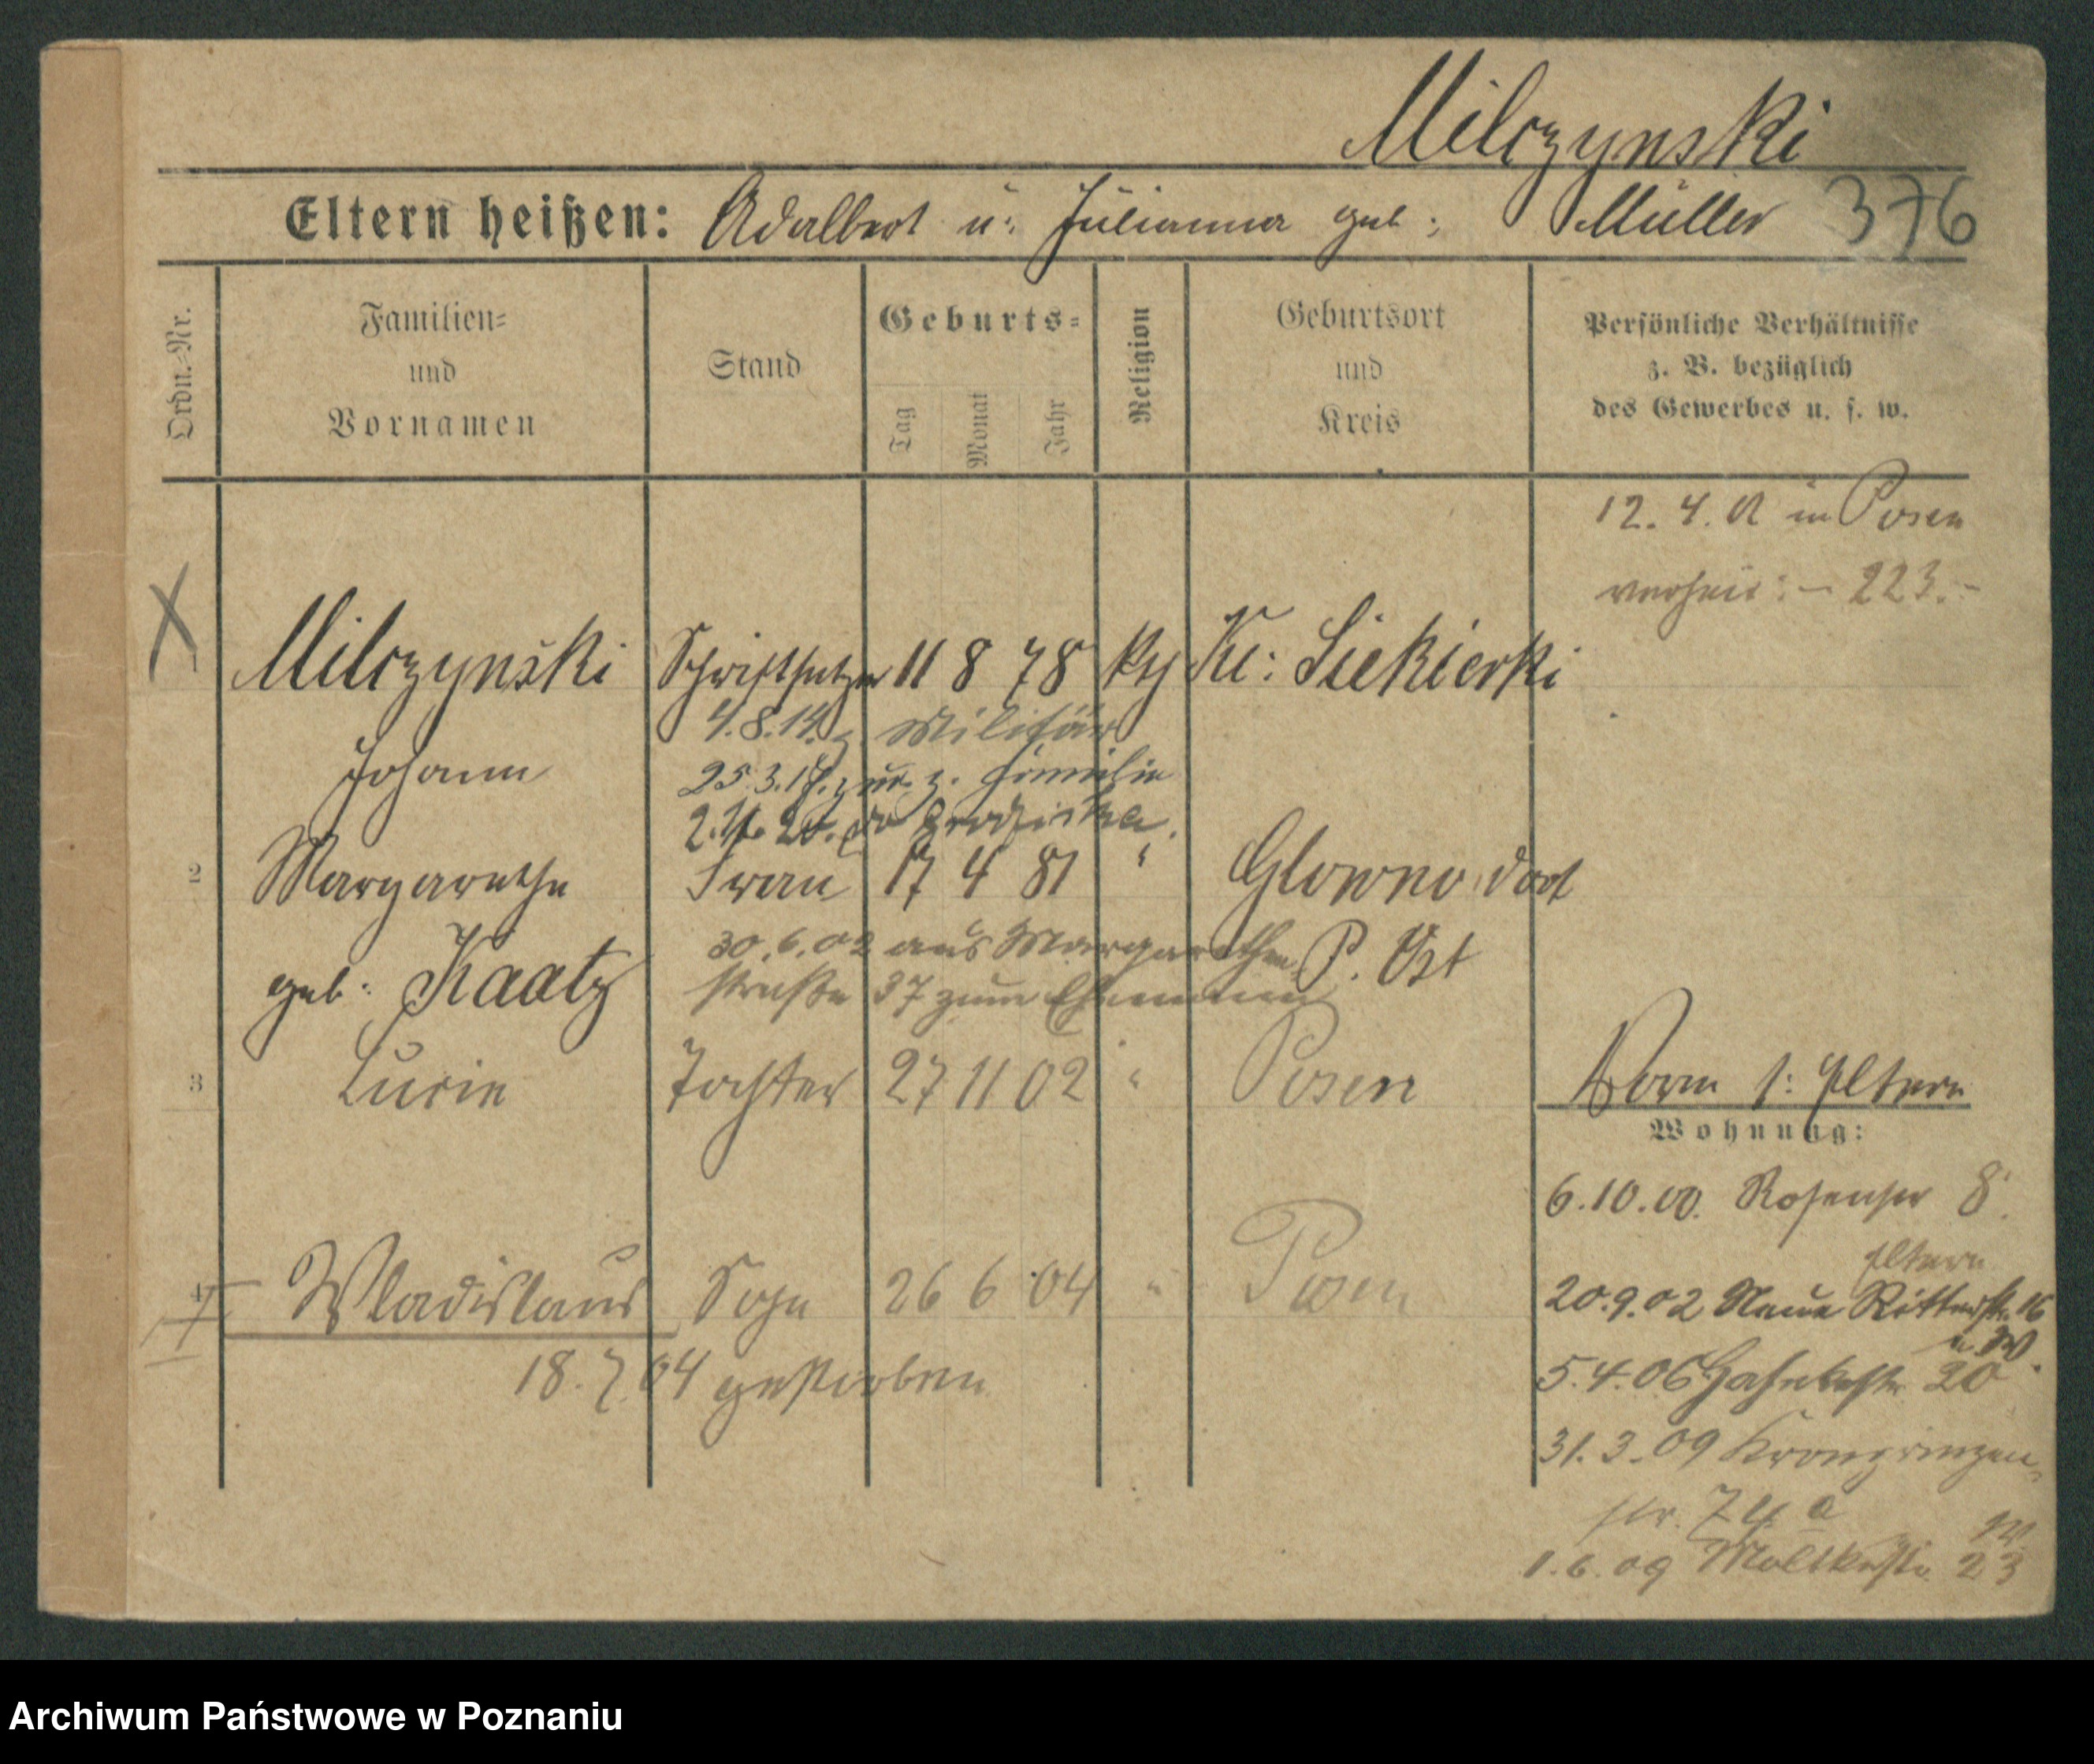 Milczynski
Eltern heißen: Adalbert u: Julianna geb: Müller 376
Ordn.-Nr.
Familien-
und
Vornamen
Stand
Geburts-
Tag
Monat
Jahr
Religion
Geburtsort
und
Kreis
Persönliche Verhältnisse
z. B. bezüglich
des Gewerbes u. s. w.
12. 4. 02 in Posen
verheir: – 223.–
X
1 Milczynski Schriftsetzer 11 8 78 kth Kl: Siekierki
4.8.14. z. Militär
Johann
25.3.17. zur. z. Familie
2.11. 20.
2 Margarethe Frau 17 4 81 " Glowno dort
30.6.02 aus Margarethen P. Ost
geb: Kaatz
straße 37 zum Ehemann
3 Lucie Tochter 27 11 02 " Posen
Vorm 1: Eltern
Wohnung:
6.10.00. Rosenstr 8.
Eltern
4 Wladislaus Sohn 26 6 04 " Posen
20.9.02 Neue Ritterstr. 16
u. W.
18.7.04 gestorben
5.4.06 20
31.3.09 Kronprinzen-
str. 74 a
W
1.6.09 Moltkestr. 23
Archiwum Państwowe w Poznaniu